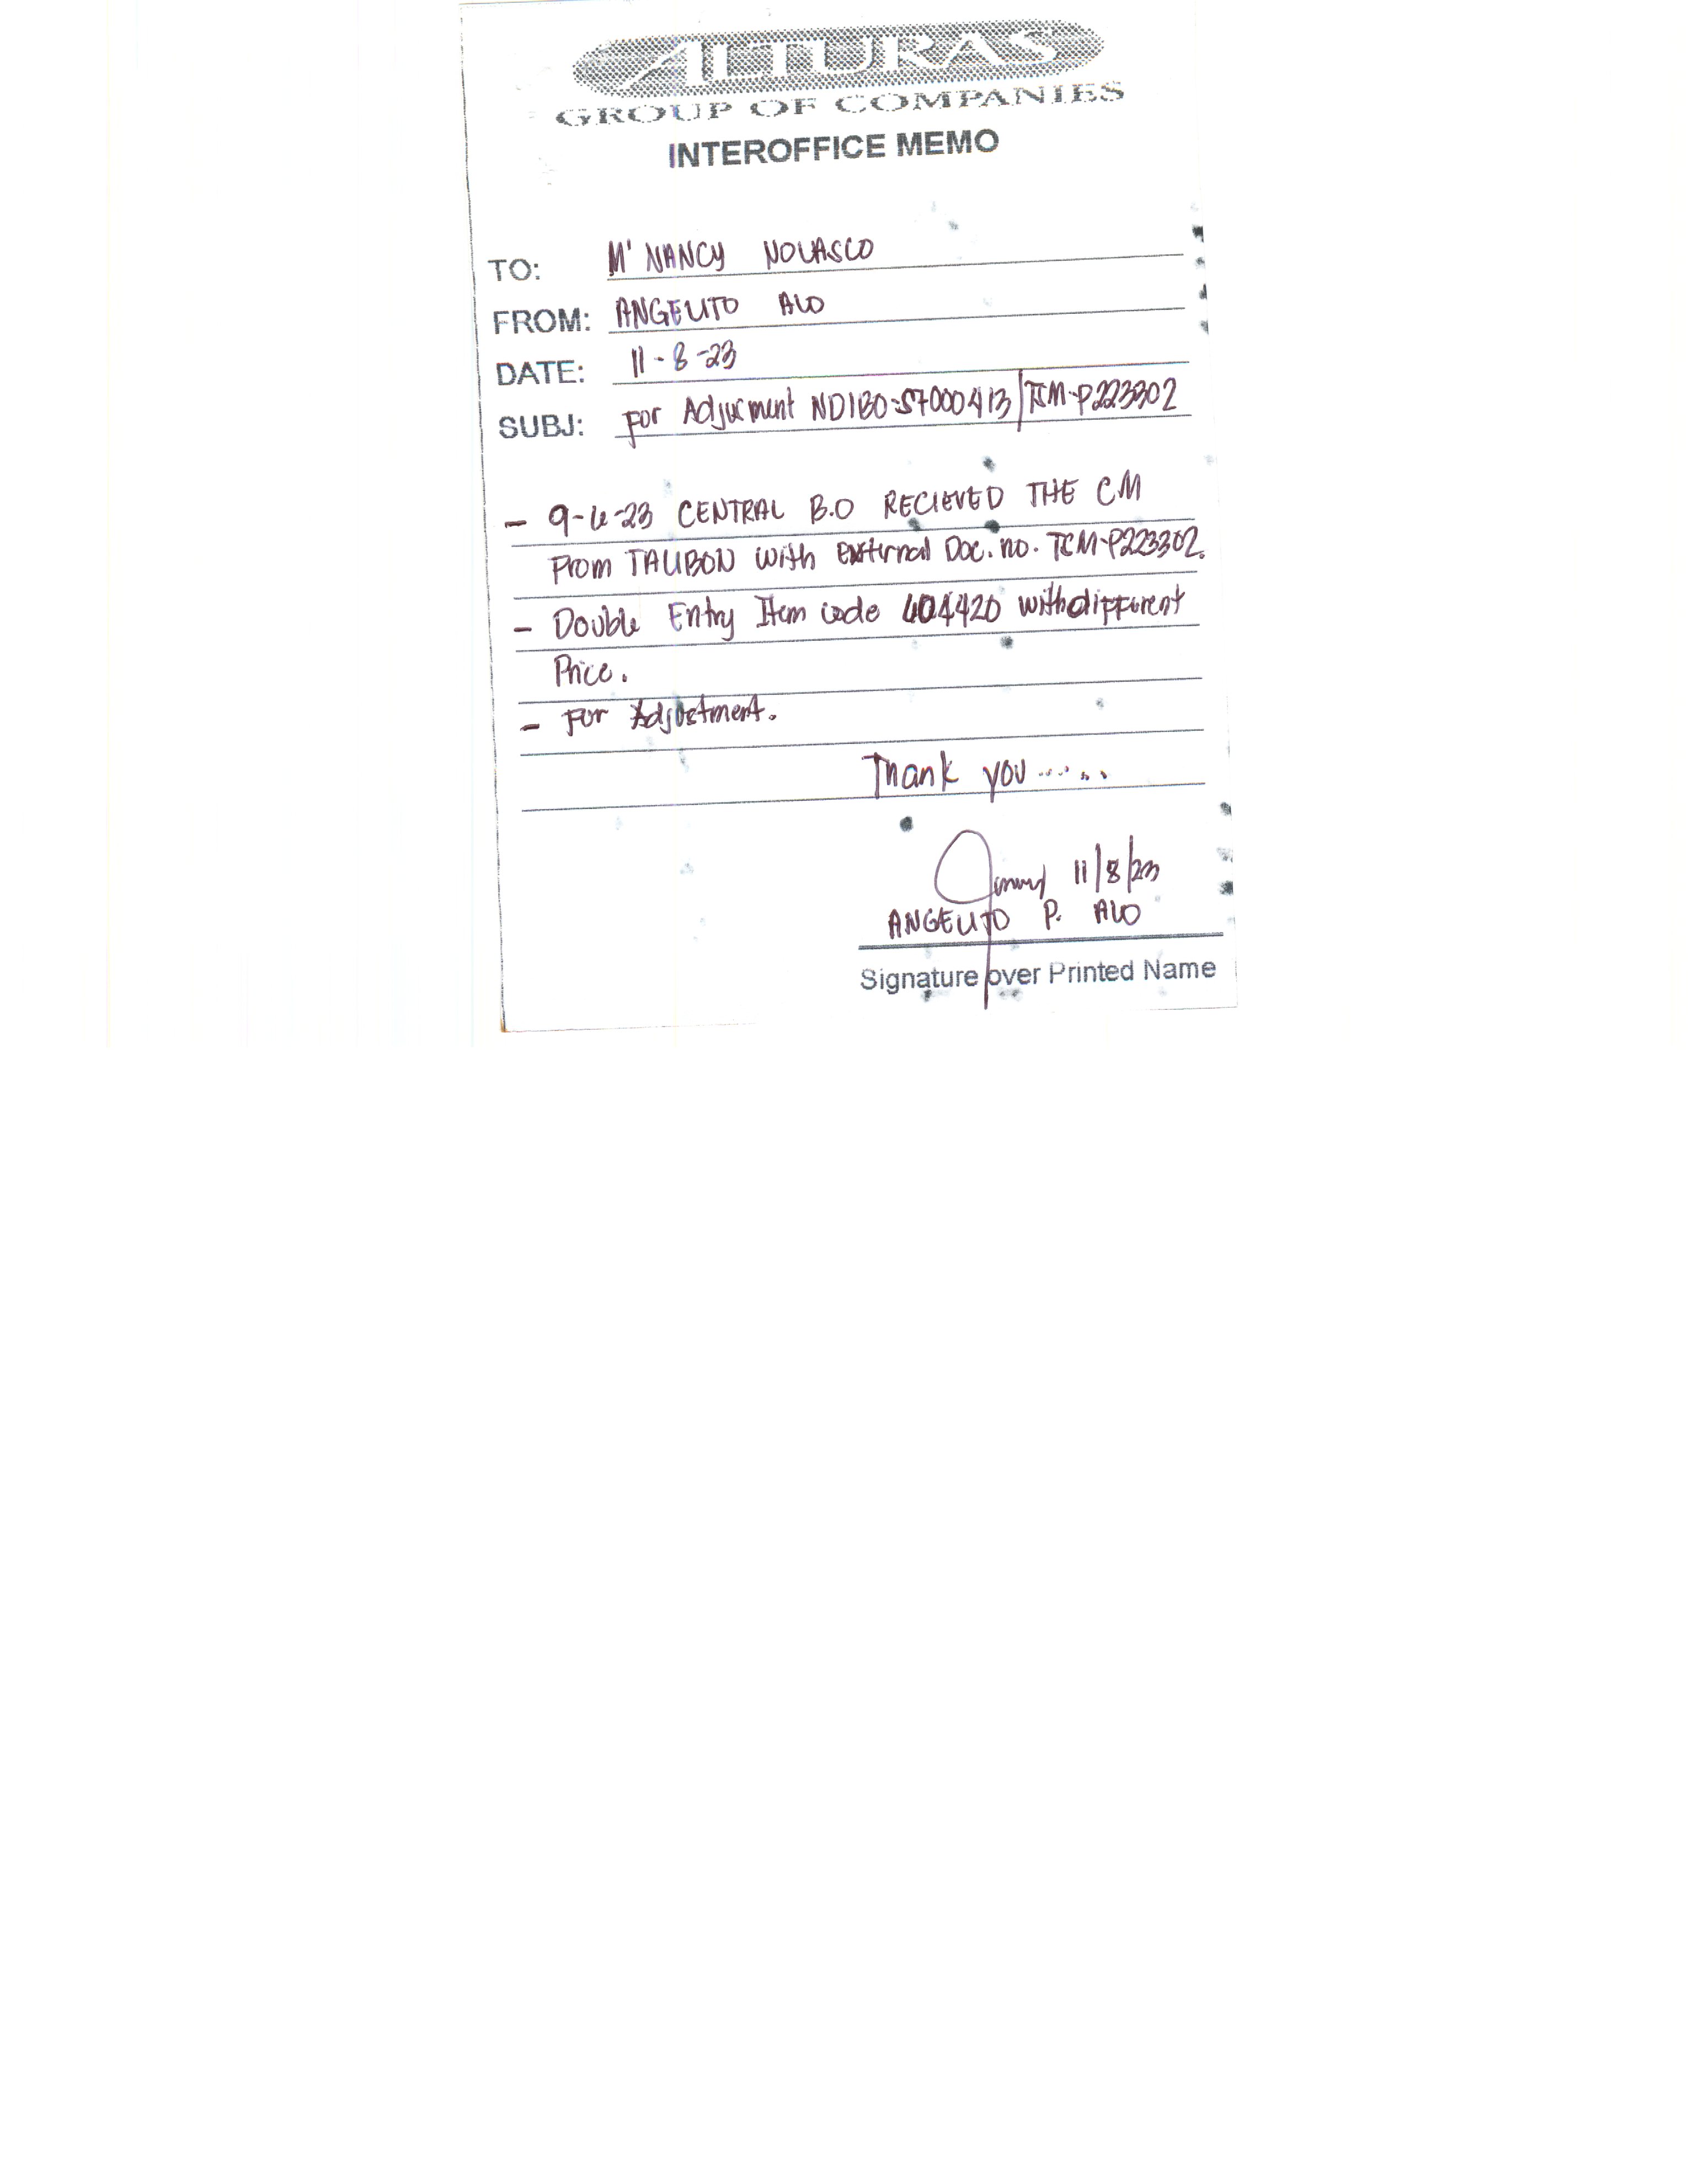 ALTURAS
GROUP OF COMPANIES
INTEROFFICE MEMO
TO: M' NANCY NOLASCO
FROM: ANGELITO ALO
DATE: 11-8-23
SUBJ: For Adjusment NDIBO-ST000413/TCM-P223302
- 9-6-23 CENTRAL B.O RECIEVED THE CM
From TALIBON with External Doc. no. TCM-P223302.
- Double Entry Item code 404420 with different
Price.
- For Adjustment.
Thank you ......
11/8/23
ANGELITO P. ALO
Signature over Printed Name